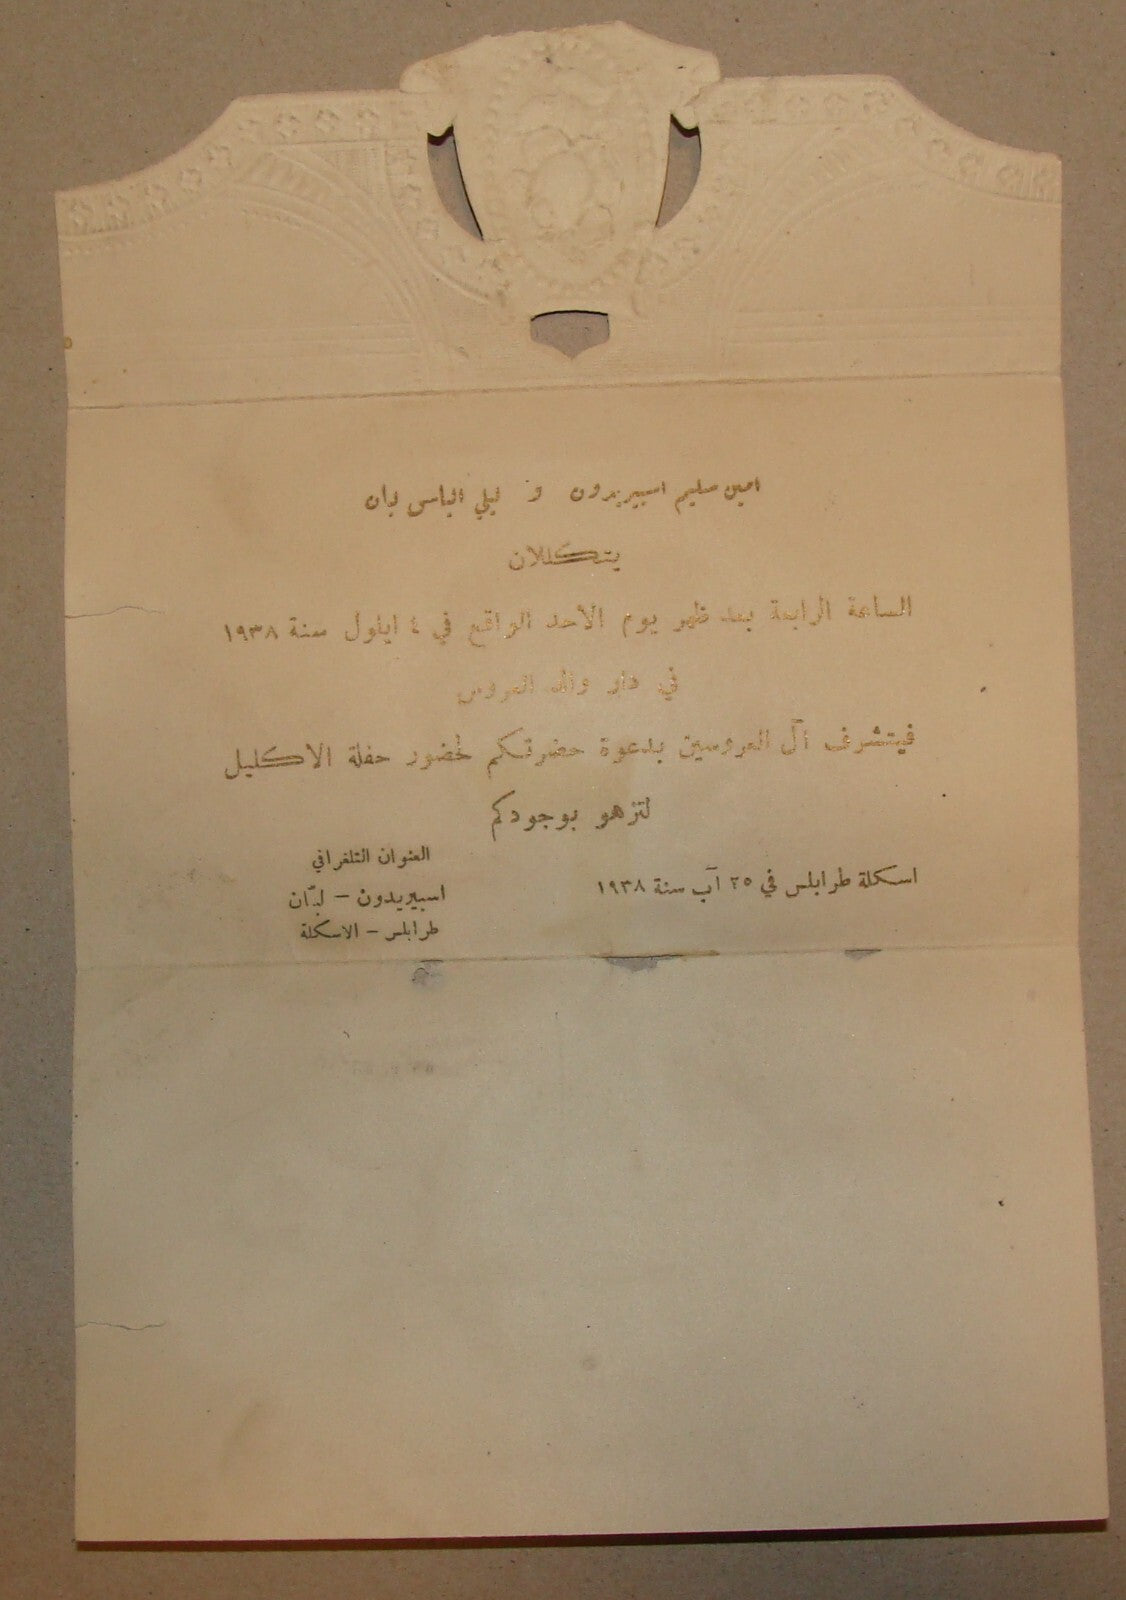 امين سليم اسبيريدون و ليلي الياس لبان
يتكللان
الساعة الرابعة بعد ظهر يوم الاحد الواقع في ٤ ايلول سنة ١٩٣٨
في دار والد العروس
فيتشرف آل العروسين بدعوة حضرتكم لحضور حفلة الاكليل
لتزهو بوجودكم
اسكلة طرابلس في ٢٥ آب سنة ١٩٣٨
العنوان التلغرافي
اسبيريدون – لبّان
طرابلس – الاسكلة